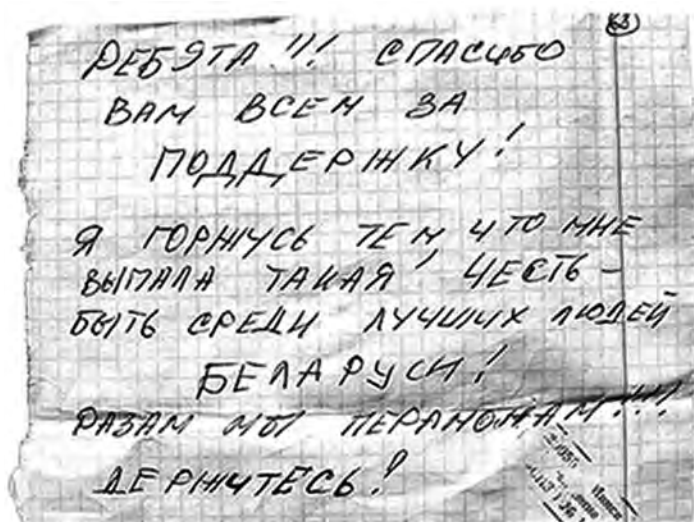 63
РЕБЯТА!!! СПАСИБО
ВАМ ВСЕМ ЗА
ПОДДЕРЖКУ!
Я ГОРЖУСЬ ТЕМ, ЧТО МНЕ
ВЫПАЛА ТАКАЯ ЧЕСТЬ –
БЫТЬ СРЕДИ ЛУЧШИХ ЛЮДЕЙ
БЕЛАРУСИ!
РАЗАМ МЫ ПЕРАМОЖАМ!!!
ДЕРЖИТЕСЬ!